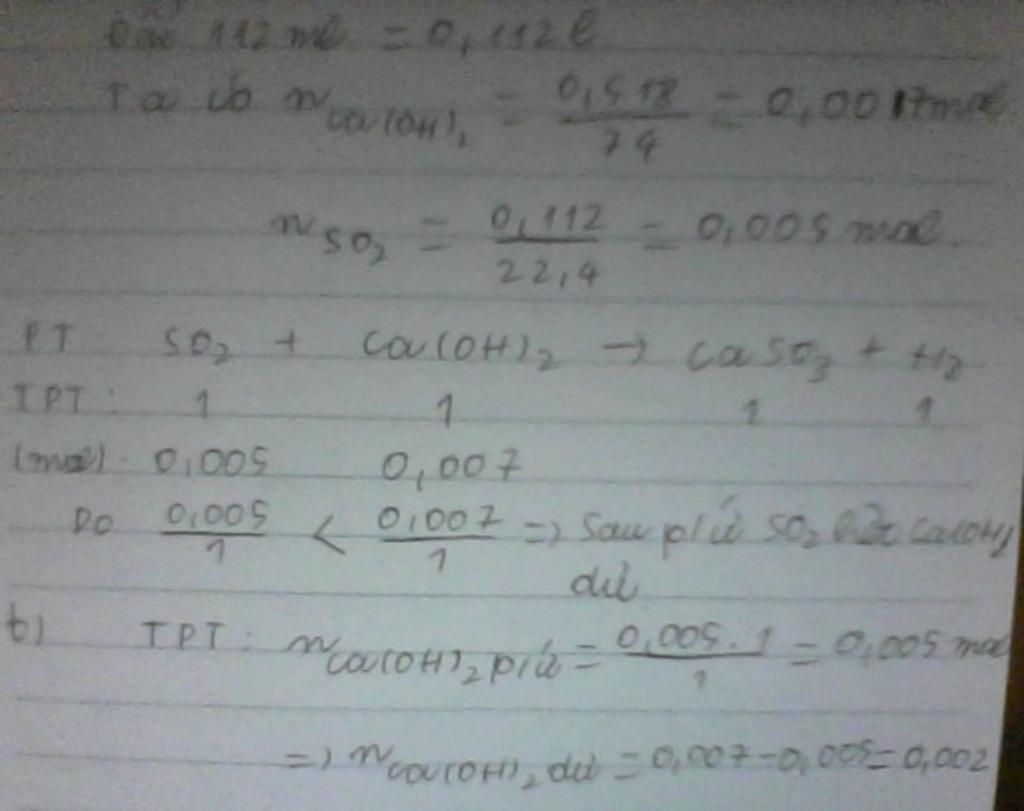 Đổi 112 ml = 0,112 l
Ta có n Ca(OH)₂ = 0,518/74 = 0,007 mol
n SO₂ = 0,112/22,4 = 0,005 mol.
PT SO₂ + Ca(OH)₂ → CaSO₃ + H₂
TPT: 1 1 1 1
(mol) 0,005 0,007
Do 0,005/1 < 0,007/1 => Sau p/ứ SO₂ hết Ca(OH)₂
dư
b) TPT: n Ca(OH)₂ p/ứ = 0,005.1/1 = 0,005 mol
=> n Ca(OH)₂ dư = 0,007-0,005=0,002